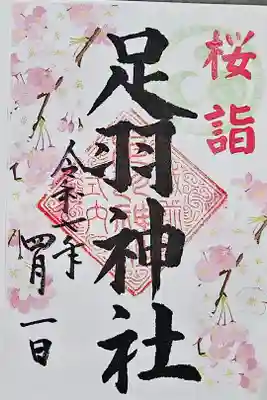 桜詣
足羽神社
令和七年
四月一日